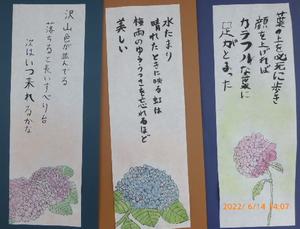 沢山色が並んでる
落ちると長いすべり台
次はいつ来れるかな
水たまり
晴れたときに映る虹は
梅雨のゆううつさを忘れるほど
美しい
葉の上を必死に歩き
顔を上げれば
カラフルな家に
足がとまった
2022/ 6/14 14:07